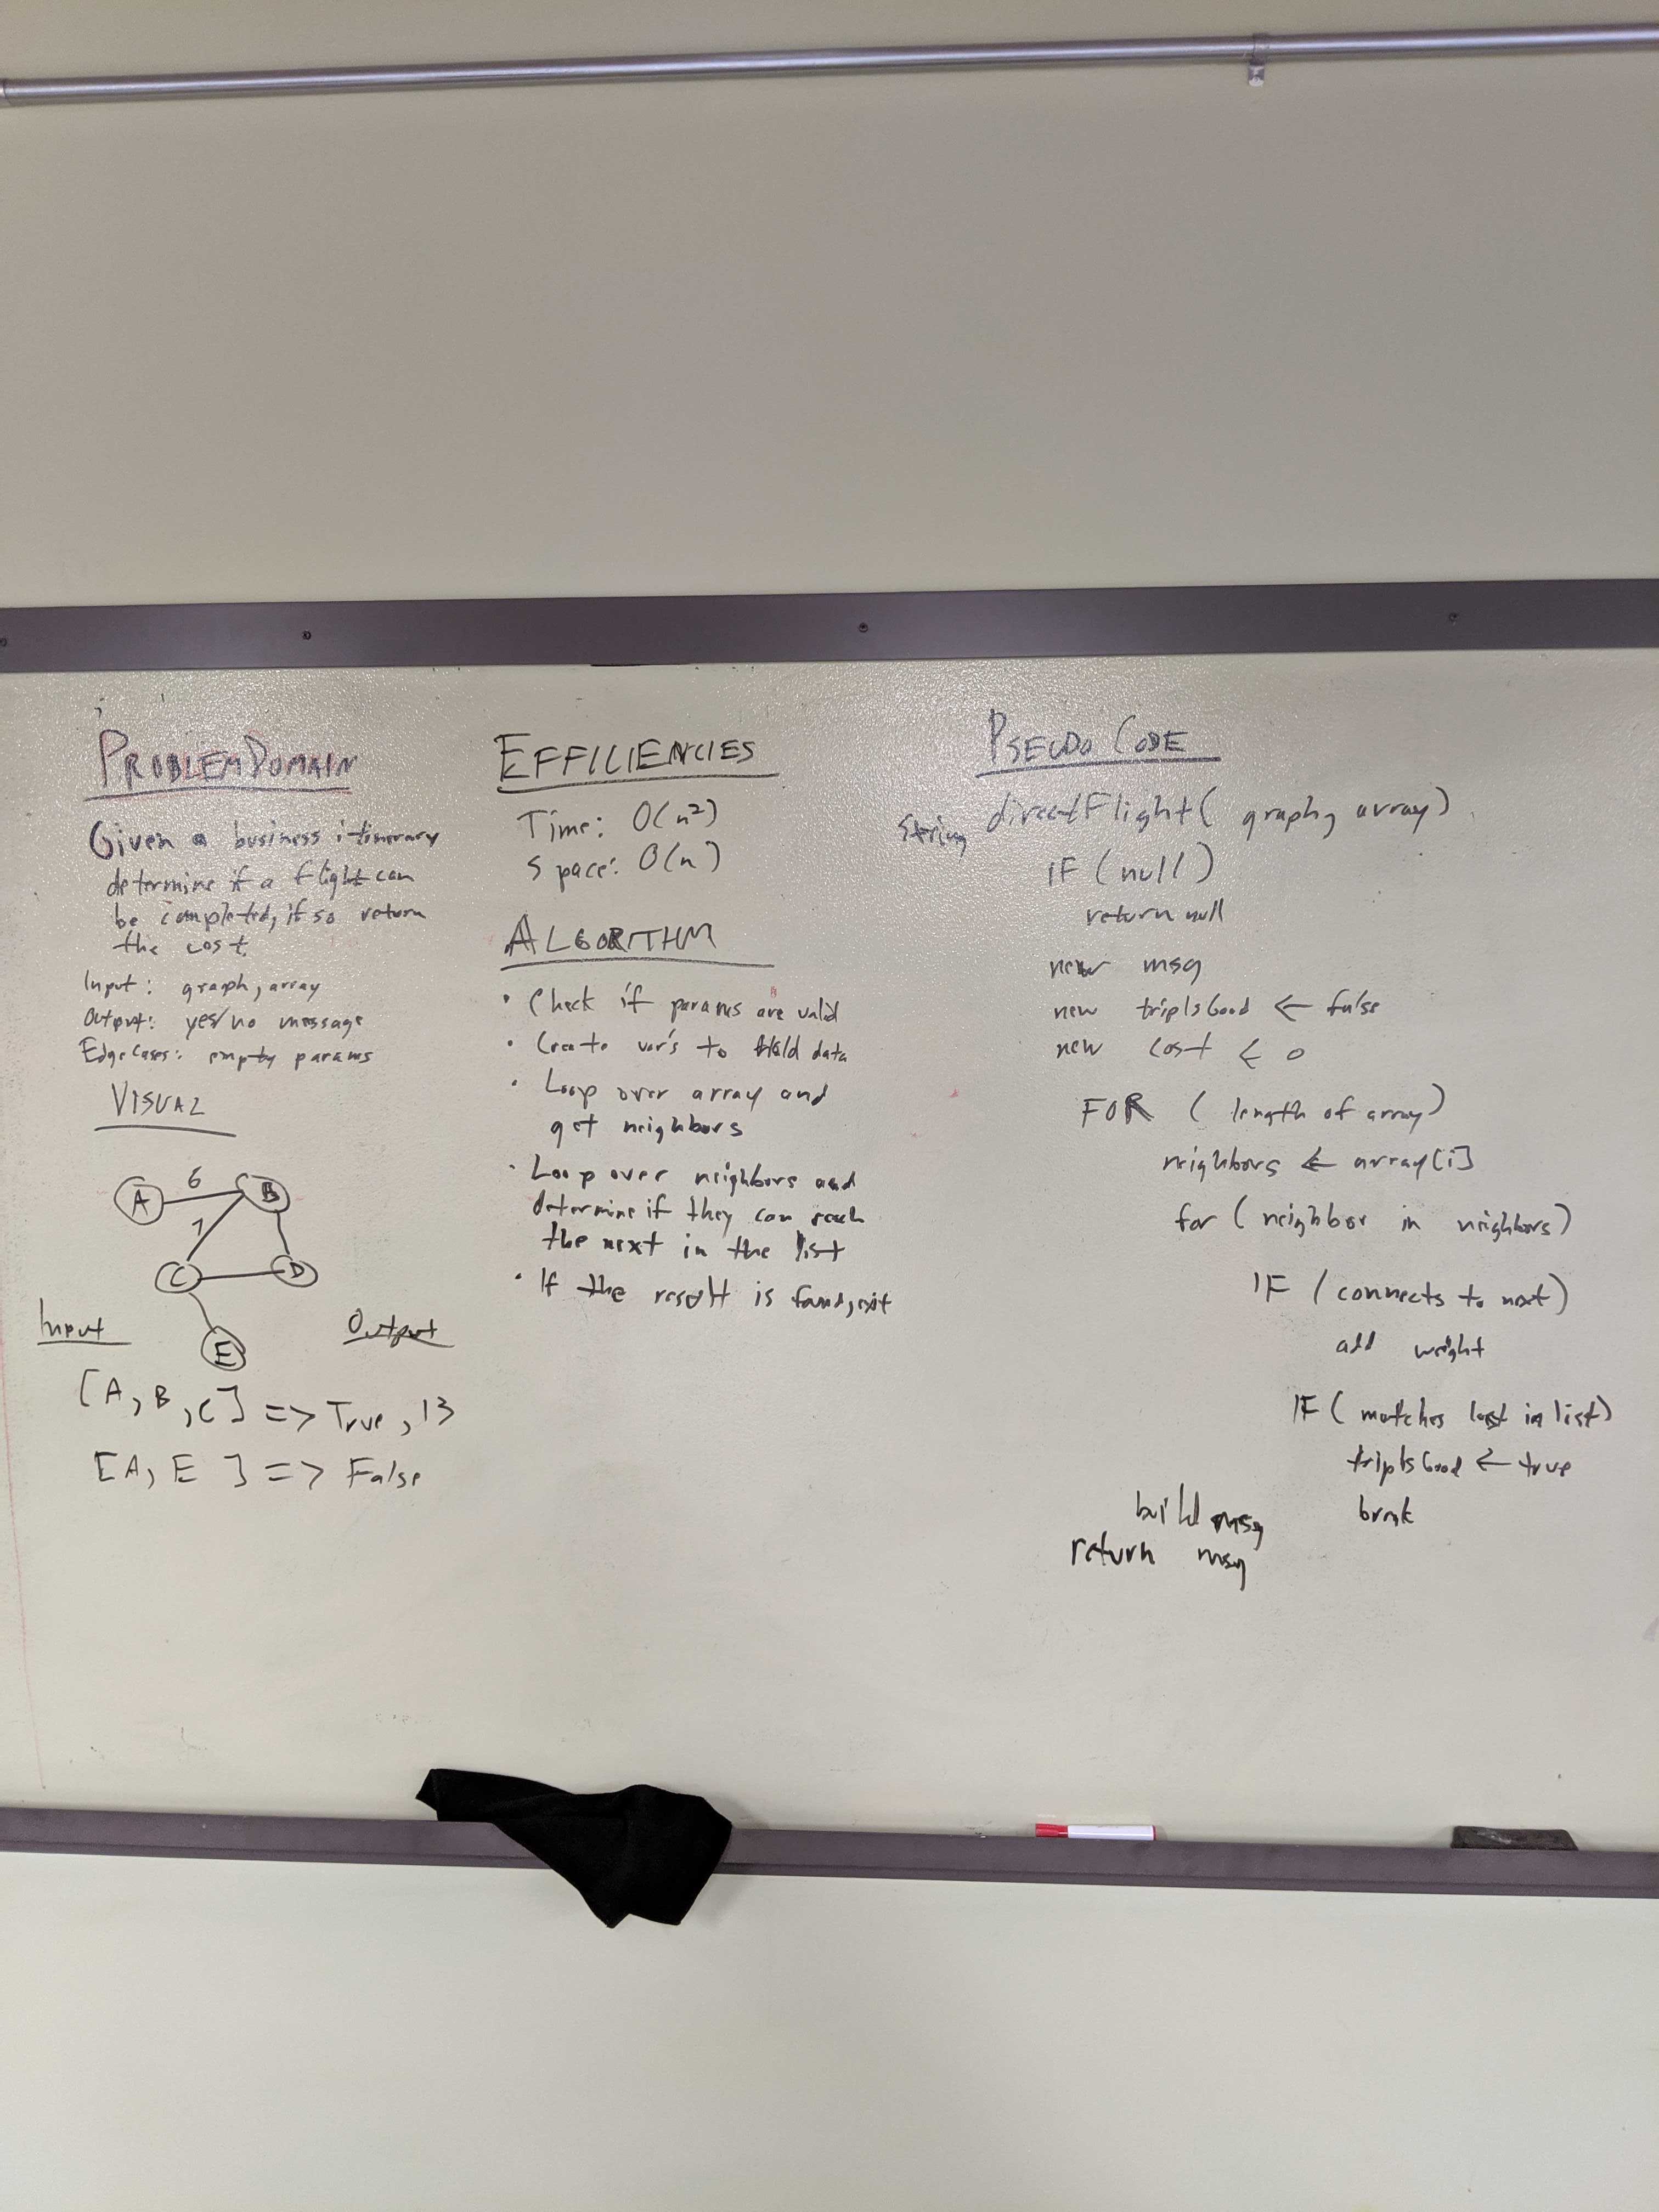 PROBLEM DOMAIN
Given a business itinerary
determine if a flight can
be completed, if so return
the cost.
Input: graph, array
Output: yes/no message
Edge Cases: empty params
VISUAL
A
6
B
7
C
D
E
Input
Output
[A, B, C] => True, 13
[A, E ] => False
EFFICIENCIES
Time: O(n²)
Space: O(n)
ALGORITHM
• Check if params are valid
• Create var's to Hold data
• Loop over array and
get neighbors
• Loop over neighbors and
determine if they can reach
the next in the list
• If the result is found, exit
PSEUDO CODE
String directFlight( graph, array)
IF (null)
return null
new msg
new tripIsGood ← false
new cost ← 0
FOR ( length of array)
neighbors ← array[i]
for ( neighbor in neighbors)
IF (connects to next)
add weight
IF ( matches last in list)
tripIsGood ← true
break
build msg
return msg